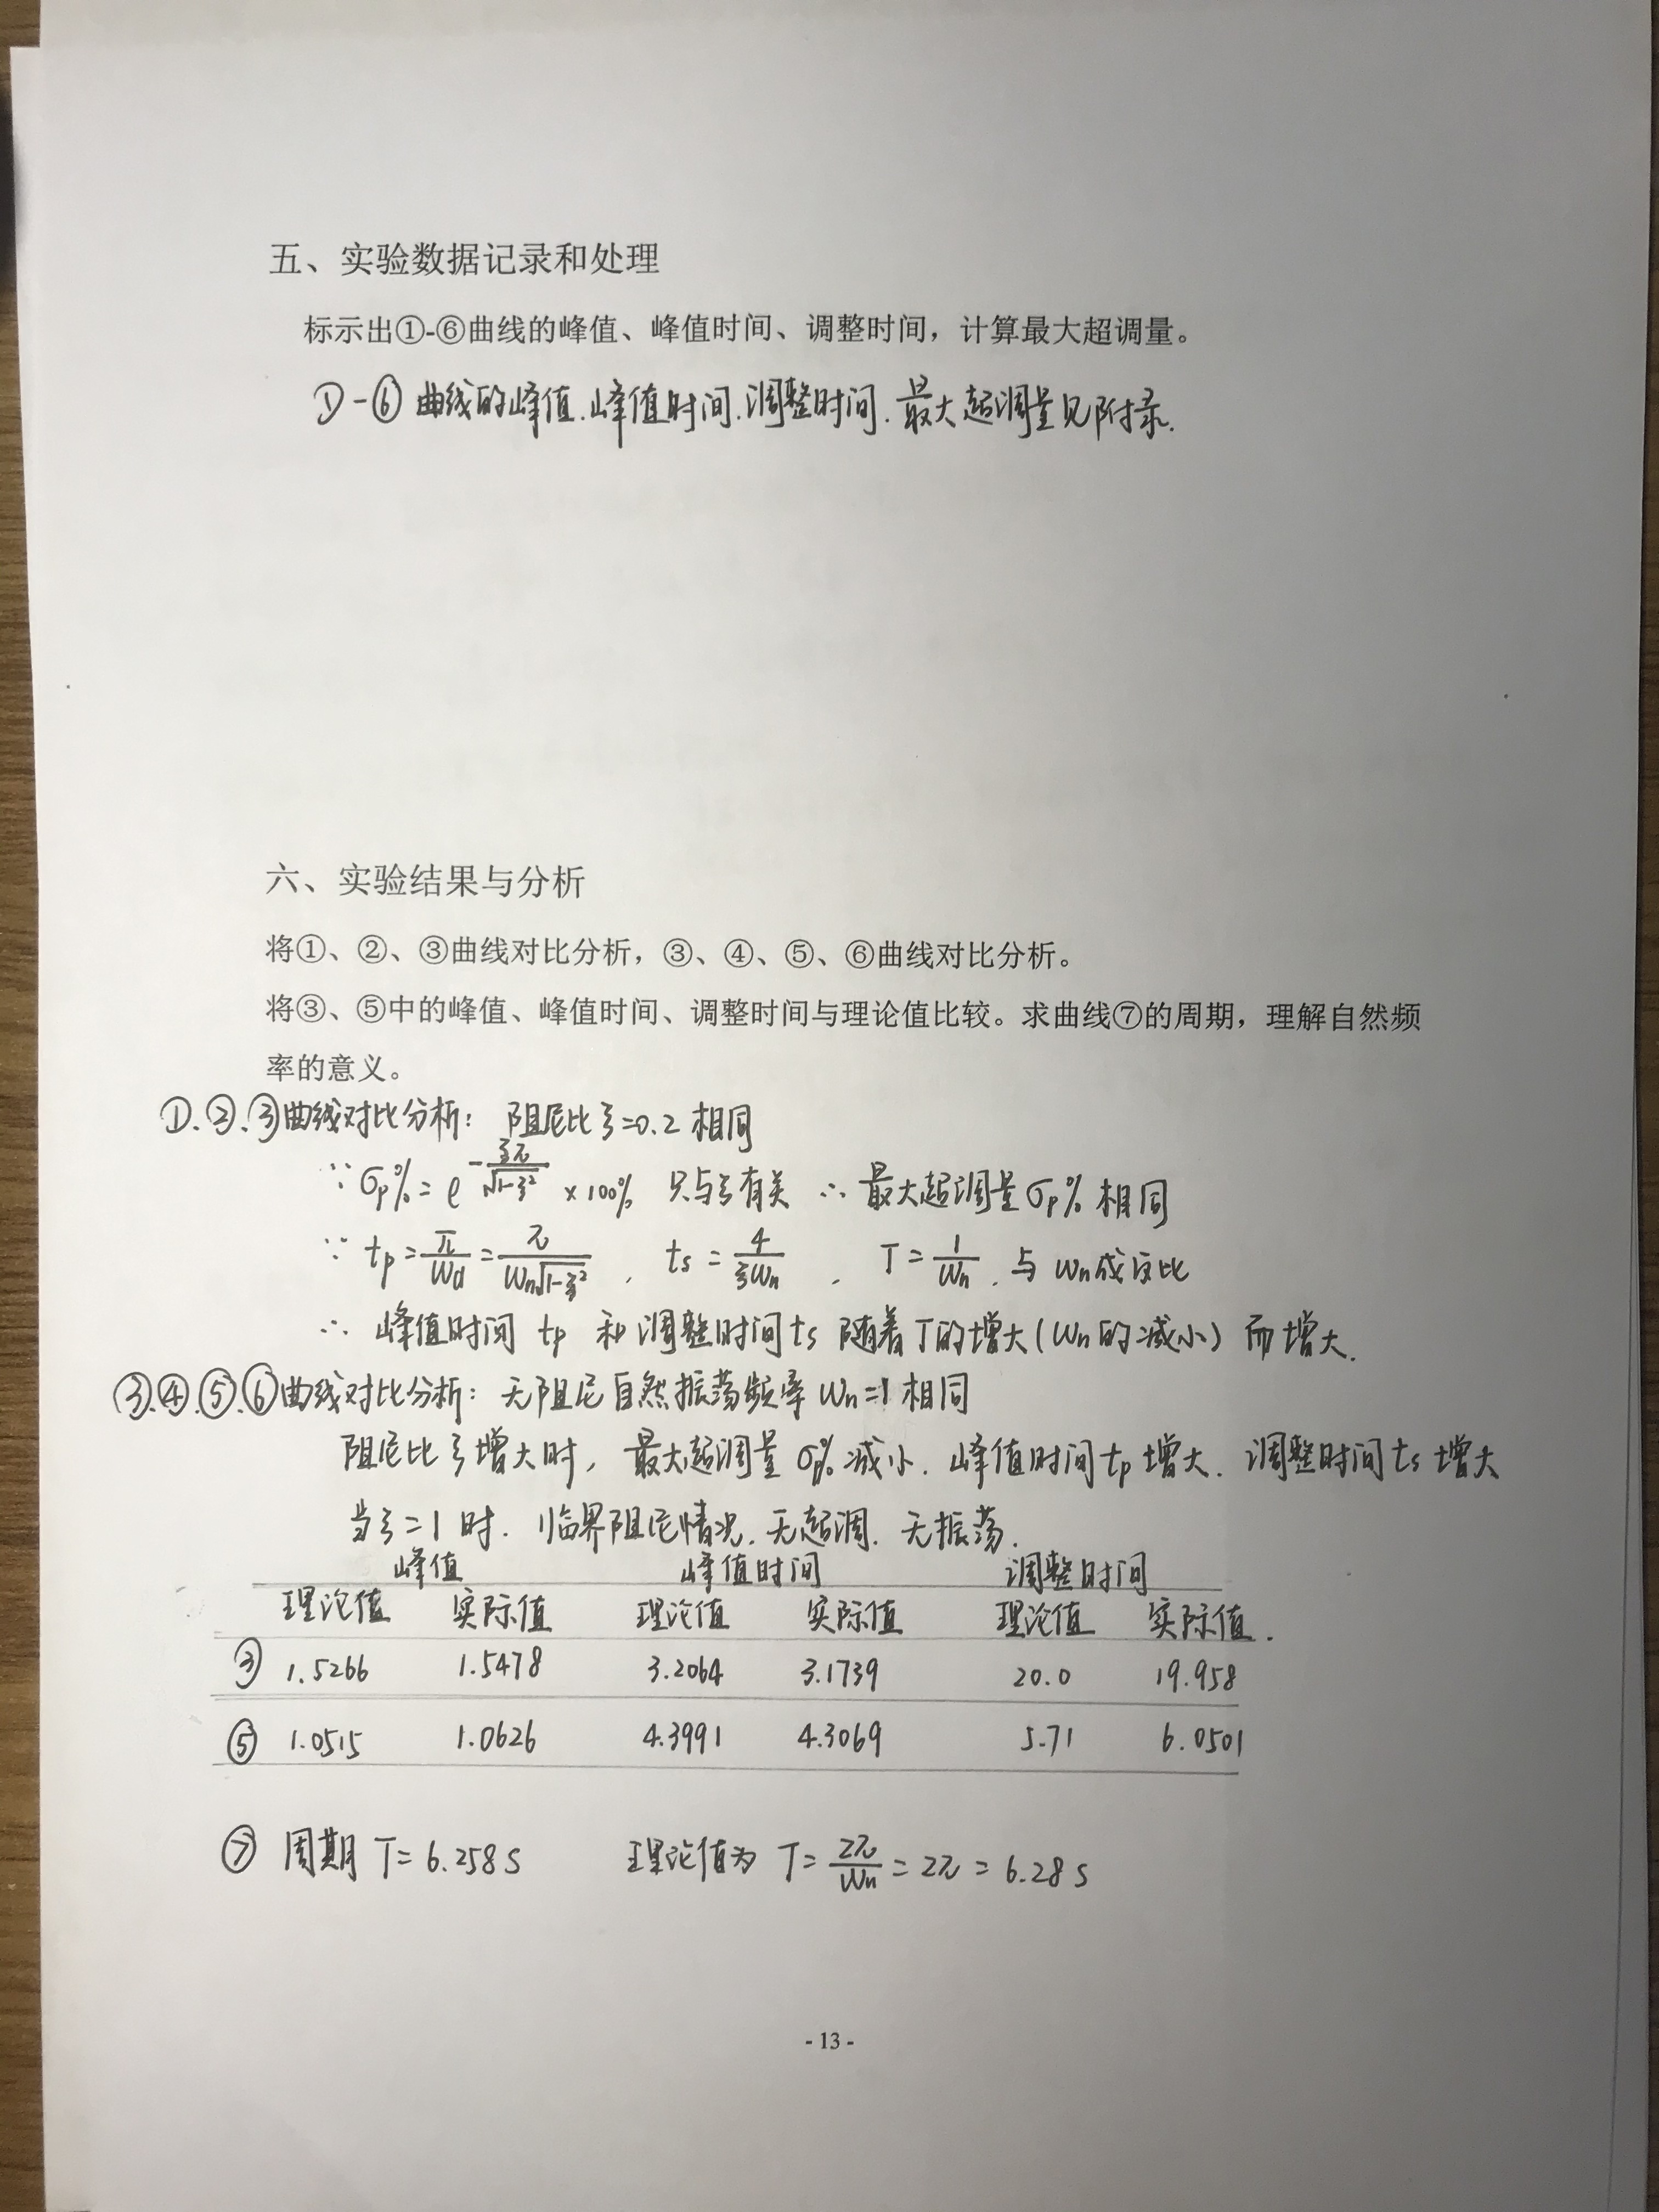 五、实验数据记录和处理
标示出①-⑥曲线的峰值、峰值时间、调整时间，计算最大超调量。
①-⑥曲线的峰值.峰值时间.调整时间.最大超调量见附录.
六、实验结果与分析
将①、②、③曲线对比分析，③、④、⑤、⑥曲线对比分析。
将③、⑤中的峰值、峰值时间、调整时间与理论值比较。求曲线⑦的周期，理解自然频
率的意义。
①.②.③曲线对比分析: 阻尼比ξ=0.2 相同
∵ σp% = e^(-ξπ/√(1-ξ²)) ×100% 只与ξ有关 ∴ 最大超调量σp% 相同
∵ tp = π/Wd = π/(Wn√(1-ξ²)) , ts = 4/(ξWn) , T = 1/Wn , 与 Wn成反比
∴ 峰值时间 tp 和 调整时间ts 随着T的增大(Wn的减小) 而增大.
③.④.⑤.⑥曲线对比分析: 无阻尼自然振荡频率 Wn=1 相同
阻尼比ξ增大时, 最大超调量 σp% 减小. 峰值时间tp 增大. 调整时间ts 增大
当ξ=1 时. 临界阻尼情况.无超调.无振荡.
峰值 峰值时间 调整时间
理论值 实际值 理论值 实际值 理论值 实际值.
③ 1.5266 1.5478 3.2064 3.1739 20.0 19.958
⑤ 1.0515 1.0626 4.3991 4.3069 5.71 6.0501
⑦ 周期 T= 6.258 s 理论值为 T= 2π/Wn = 2π = 6.28 s
- 13 -